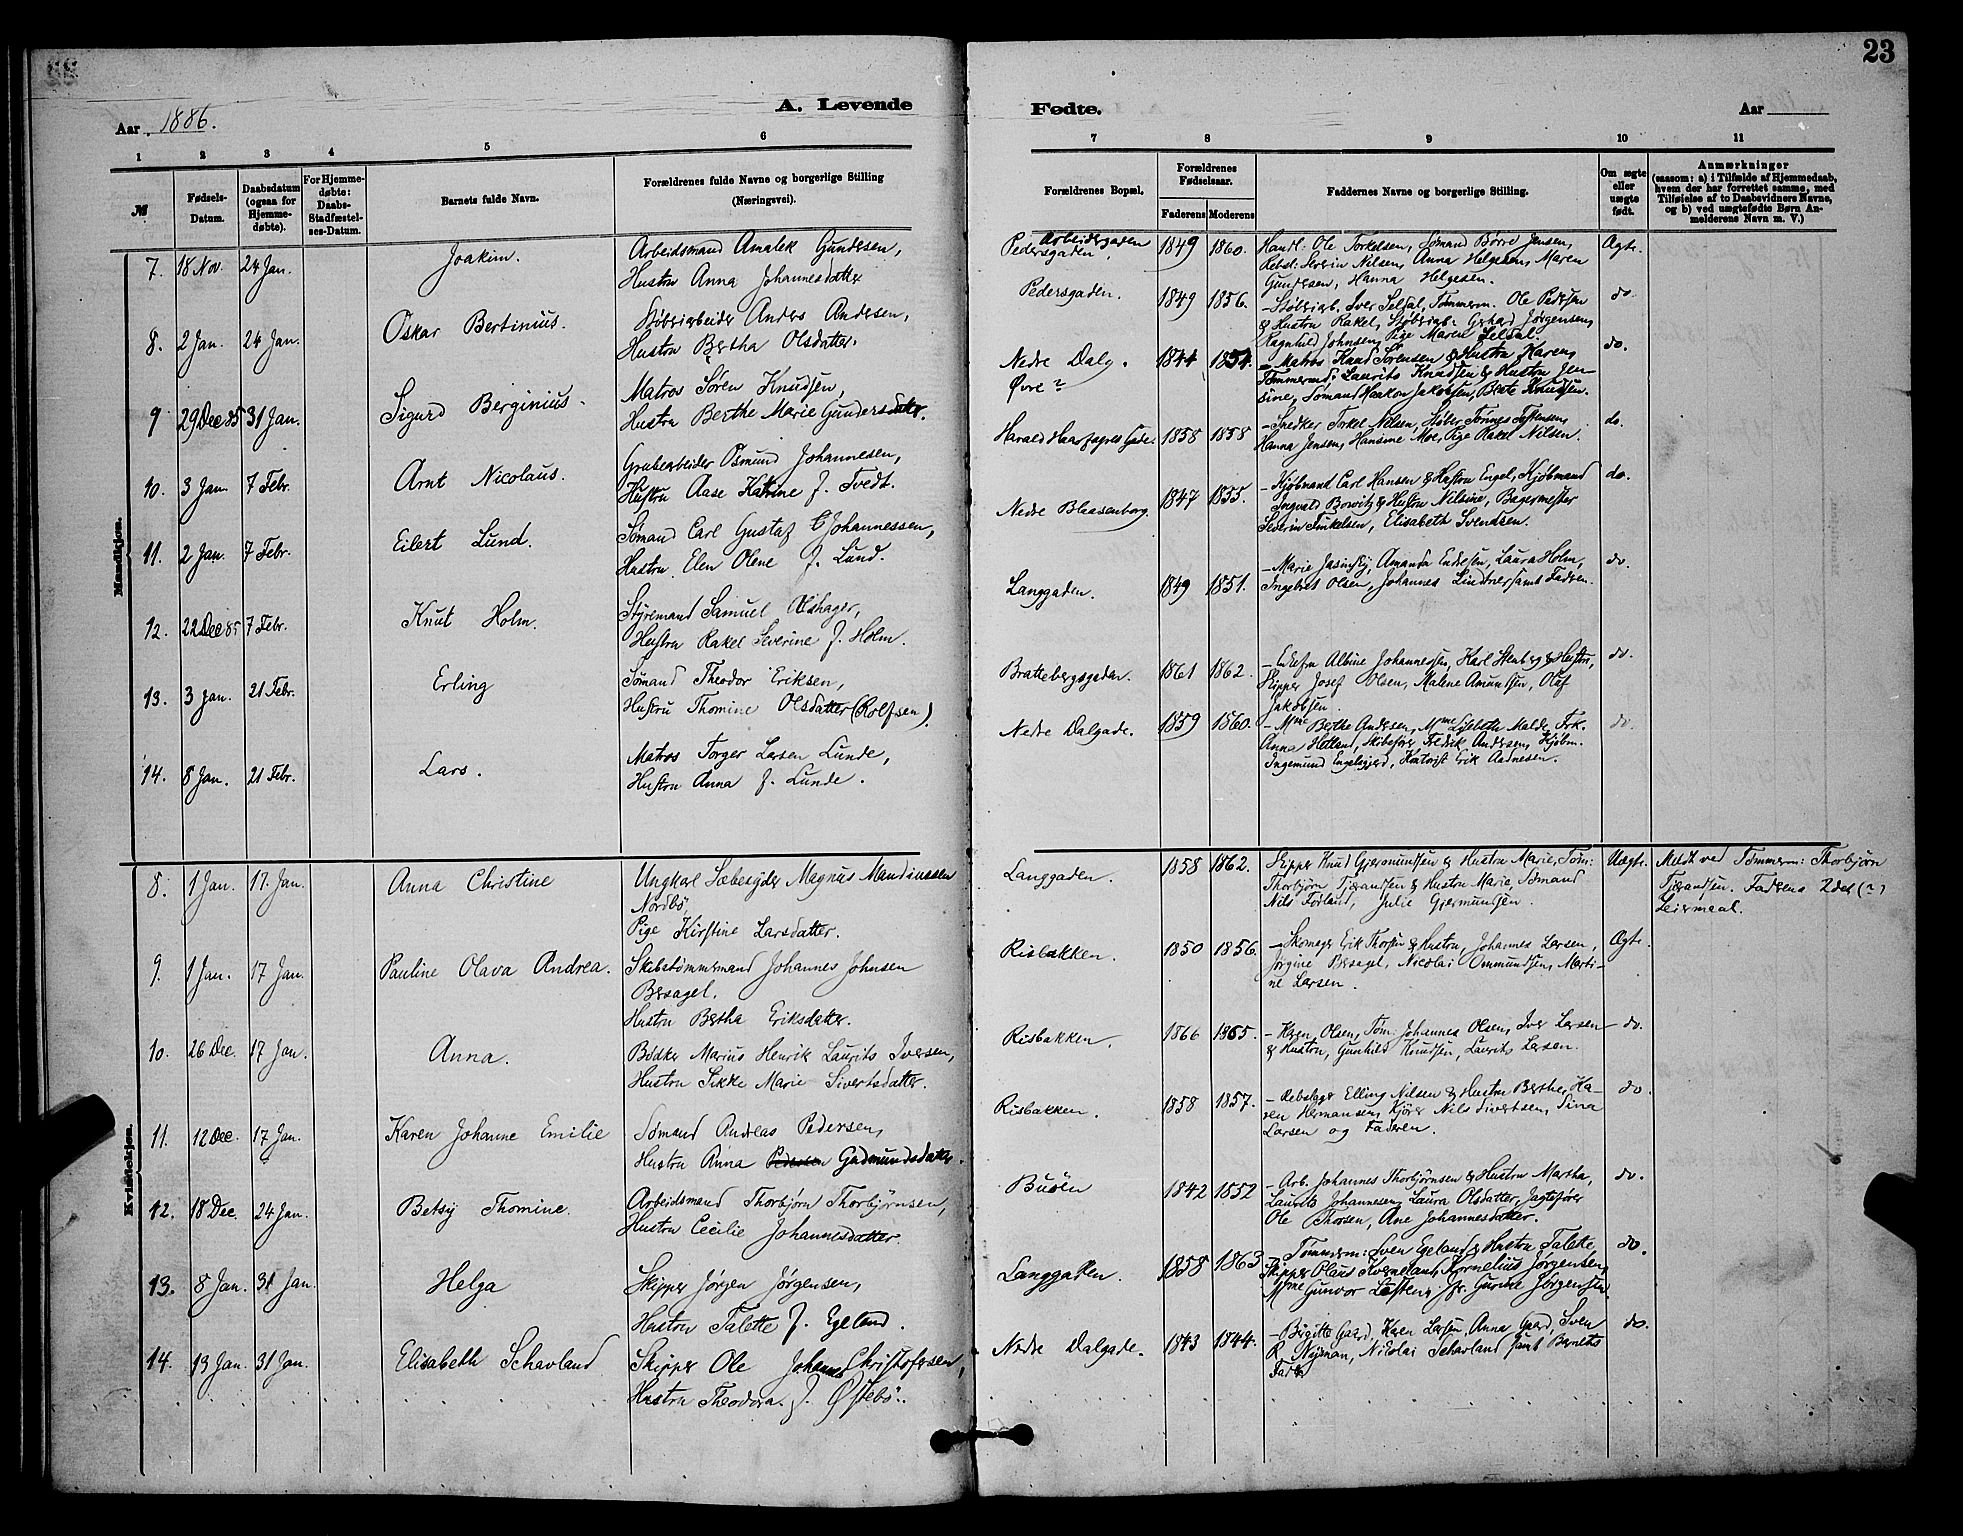 23
A. Levende
Fødte.
Aar 1886.
Aar
1 2 3 4 5 6 7 8 9 10 11
№
Fødsels-
Datum.
Daabsdatum
(ogsaa for
Hjemme-
døbte).
For Hjemme-
døbte:
Daabs-
Stadfæstel-
ses-Datum.
Barnets fulde Navn.
Forældrenes fulde Navne og borgerlige Stilling
(Næringsvei).
Forældrenes Bopæl.
Forældrenes
Fødselsaar.
Faderens Moderens
Faddernes Navne og borgerlige Stilling.
Om ægte
eller
uægte
født.
Anmærkninger
(saasom: a) i Tilfælde af Hjemmedaab,
hvem der har forrettet samme, med
Tilføielse af to Daabsvidners Navne,
og b) ved uægtefødte Børn An-
melderens Navn m. V.)
Mandkjøn.
7. 18 Nov. 24 Jan. Joakim.
Arbeidsmand Amalek Gundersen,
Hustru Anna Johannesdatter
Arbeidergaden
Pedersgaden. 1849 1860.
Handl: Ole Torkelsen, Sømand Børre Jensen,
Rebsl: Severin Nilsen, Anna Helgesen, Maren
Gundersen, Hanna Helgesen.
Ægte.
8. 2 Jan. 24 Jan. Oskar Bertinius.
Støberiarbeider Anders Andersen,
Hustru Bertha Olsdatter.
Pedersgaden. 1849 1856.
– Støberiarb. Iver Selsal, Tømmerm. Ole Pedersen
& Hustru Rakel, Støberiarb: Gerhard Jørgensen,
Ragnhild Johnsen, Pige Maren Selsal.
do.
9 29 Dec 85 31 Jan. Sigurd Berginius.
Matros Søren Knudsen,
Hustru Berthe Marie Gundersdatter.
Nedre Dalg.
Øvre? 1844 1854.
– Matros Knud Sørensen & Hustru Karen,
Tømmermd: Laurits Knudsen & Hustru Jen-
sine, Sømand Haakon Jakobsen, Berte Knudsen.
do.
10. 3 Jan. 7 Febr. Arnt Nicolaus.
Grubearbeider Osmund Johannesen,
Hustru Aase Katrine f. Tvedt.
Harald Haarfagres Gade. 1858 1858
– Snedker Torkel Nilsen, Støber Tønnes Tostensen,
Hanna Jensen, Hansine Moe, Pige Rakel Nilsen.
do.
11. 2 Jan. 7 Febr. Eilert Lund.
Sømand Carl Gustaf Johannessen,
Hustru Elen Olene f. Lund.
Nedre Blaasenborg. 1847 1855.
– Kjøbmand Carl Hansen & Hustru Engel, Kjøbmand
Ingvald Borwitz & Hustru Nilsine, Bagermester
Severin Finkelsen, Elisabeth Svendsen.
do.
12. 22 Dec 85 7 Febr. Knut Holm.
Styrmand Samuel Olshager,
Hustru Rakel Severine f. Holm.
Langgaden. 1849 1851.
– Marie Jasinsky, Amanda Endresen, Laura Holm,
Ingebret Olsen, Johannes Lindner samt Faderen.
do.
13. 3 Jan. 21 Febr. Erling
Sømand Theodor Eriksen,
Hustru Thomine Olsdatter (Rolfsen).
Brattebergsgaden. 1861 1862.
– Enkefru Albine Johannessen, Karl Stenberg & Hustru,
Skipper Josef Olsen, Malene Amundsen, Olaf
Jakobsen.
do.
14. 8 Jan. 21 Febr. Lars.
Matros Torger Larsen Lunde,
Hustru Anna f. Lunde.
Nedre Dalgade. 1859 1860.
– Mme Berthe Andersen, Mme Lisbeth Malde, Frk.
Anna Hetland, Skibsfører Fredrik Andersen, Kjøbm.
Ingemund Engelsgjerd, Erik Aadnesen.
do.
Kvindekjøn.
8. 1 Jan. 17. Jan. Anna Christine
Ungkarl Sæbesyder Magnus Mandiussen
Nordbø,
Pige Kirstine Larsdatter.
Langgaden. 1858 1862.
Skipper Knud Gjermundsen & Hustru Marie, Tøm:
Thorbjørn Tjerandsen & Hustru Marie, Sømand
Nils Forland, Julie Gjermundsen.
Uægte.
Meldt ved Tømmerm: Thorbjørn
Tjerandsen. Faderens 2det (?)
Leiermaal.
9. 1 Jan. 17 Jan. Pauline Olava Andrea.
Skibstømmermand Johannes Johnsen
Bersagel.
Hustru Bertha Eriksdatter.
Risbakken. 1850 1856.
– Skomager Erik Thorsen & Hustru, Johannes Larsen,
Jørgine Bersagel, Nicolai Ommundsen, Marti-
ne Larsen.
Ægte.
10. 26 Dec. 17 Jan. Anna.
Bødker Marius Henrik Laurits Iversen,
Hustru Sikke Marie Sivertsdatter.
Risbakken. 1866 1865.
– Karen Olsen, Tøm: Johannes Olsen, Iver Larsen
& Hustru, Gunhild Knudsen, Laurits Larsen.
– do.
11. 12 Dec. 17 Jan. Karen Johanne Emilie
Sømand Andreas Pedersen,
Hustru Anna Pedersen Gudmundsdatter.
Risbakken. 1858 1857.
– Rebslager Elling Nilsen & Hustru Berthe, Ka-
ren Hermansen, Kjører Nils Sivertsen, Sina
Larsen og Faderen.
do.
12. 18 Dec. 24 Jan. Betsy Thomine.
Arbeidsmand Thorbjørn Thorbjørnsen,
Hustru Cecilie Johannesdatter.
Buøen 1842 1852
– Arb. Johannes Thorbjørnsen & Hustru Martha,
Laurits Johannesen, Laura Olsdatter, Jagtefører
Ole Thorsen, Ane Johannesdatter.
do.
13. 8 Jan. 31 Jan. Helga
Skipper Jørgen Jørgensen,
Hustru Talette f. Egeland.
Langgaden. 1858 1863
– Tømmerm: Sven Egeland & Hustru Talette,
Skipper Olaus Kverneland, Kornelius Jørgensen,
Mme Gunvor Larsen, Jfr. Gurine Jørgensen.
do.
14. 13 Jan. 31 Jan. Elisabeth Schavland
Skipper Ole Johannes Christofersen,
Hustru Theodora f. Østebø.
Nedre Dalgade. 1843 1844.
– Birgitte Gaard, Karen Larsen, Anna Gaard, Sven
R. Nyman, Nicolai Schavland samt Barnets
Fader
do.